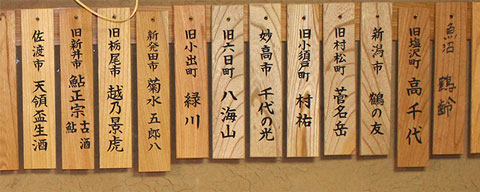 魚沼 鶴齢
旧塩沢町 高千代
新潟市 鶴の友
旧村松町 菅名岳
旧小須戸町 村祐
妙高市 千代の光
旧六日町 八海山
旧小出町 緑川
新発田市 菊水 五郎八
旧栃尾市 越乃景虎
旧新井市 鮎正宗 古酒 鮎酒
佐渡市 天領盃生酒